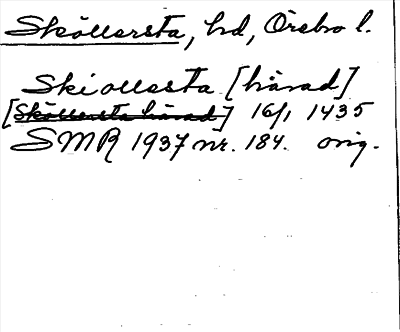 Sköllersta, hd, Örebro l.
Skiollesta [härad]
[Sköllersta härad] 16/1 1435
SMR 1937 nr. 184. orig.